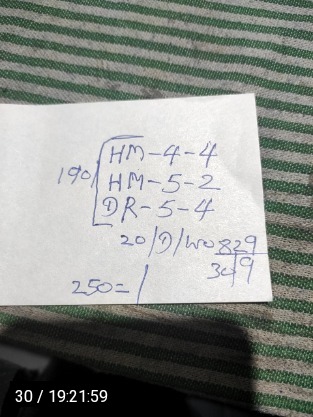 190 HM-4-4
HM-5-2
DR-5-4
20/D/WO 829
349
250=/
30 / 19:21:59